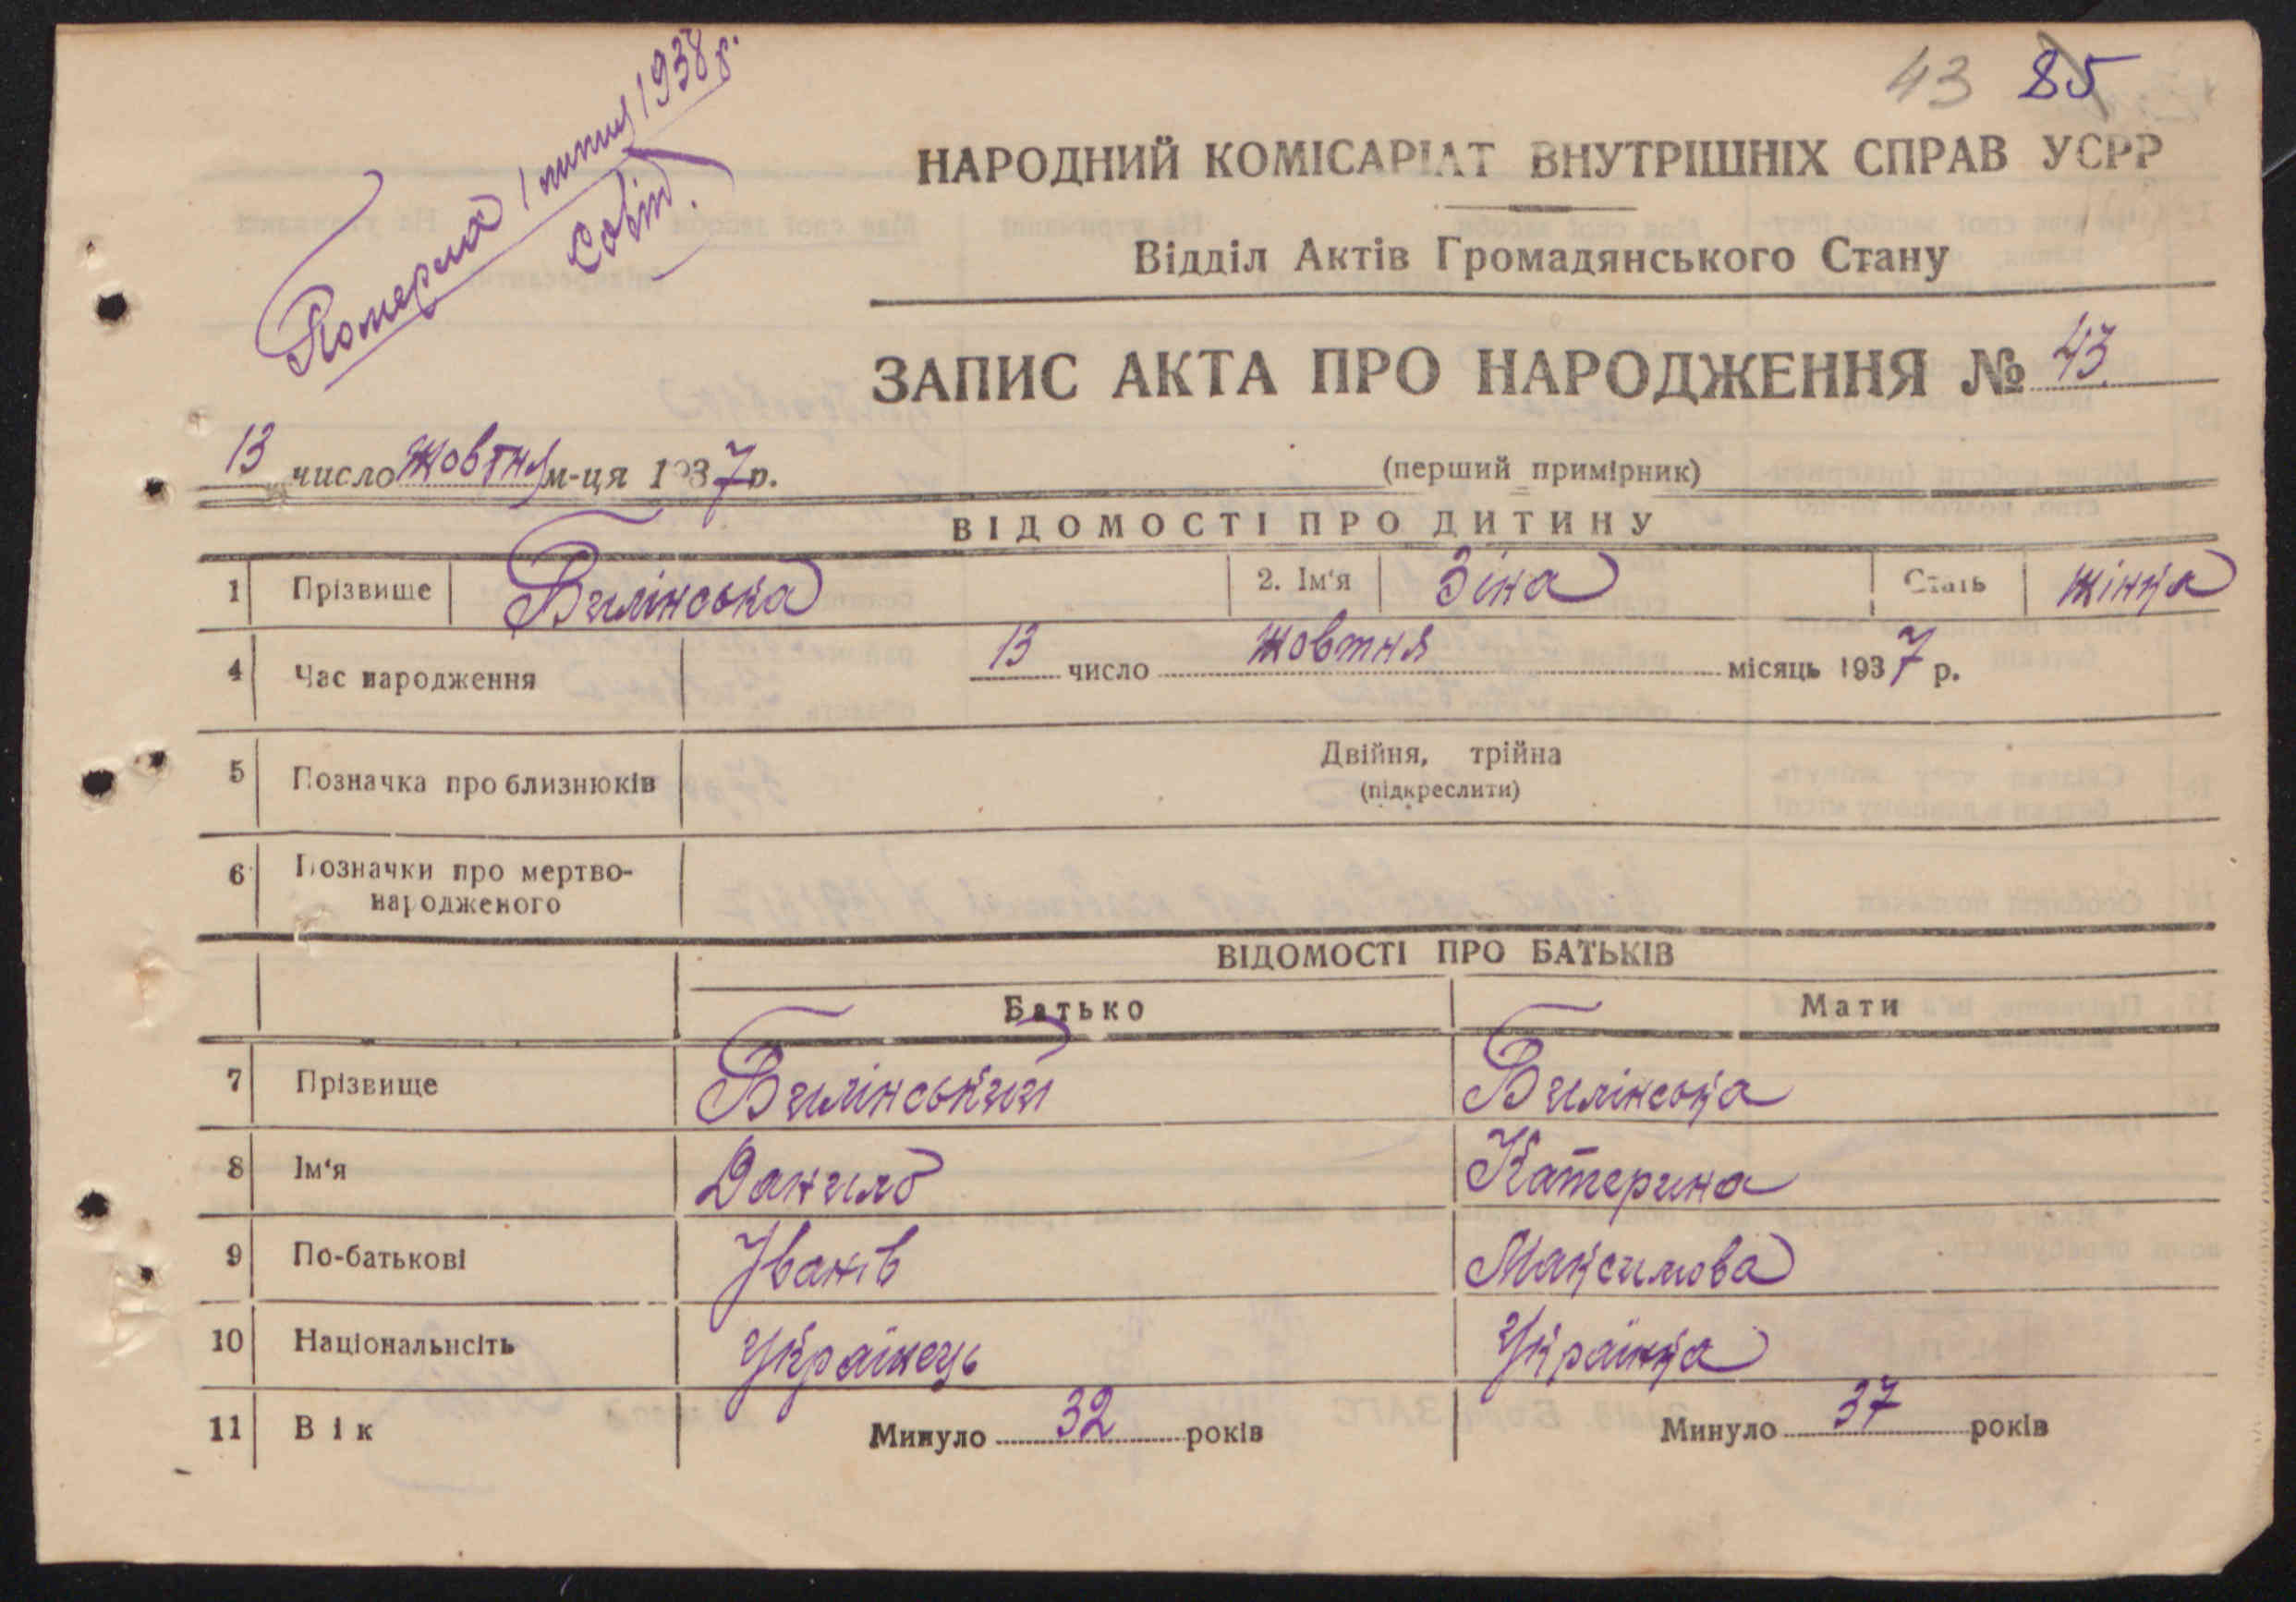 Померла 1 липня 1938 р.
43 85
НАРОДНИЙ КОМІСАРІАТ ВНУТРІШНІХ СПРАВ УСРР
Відділ Актів Громадянського Стану
ЗАПИС АКТА ПРО НАРОДЖЕННЯ № 43
13 число жовтня м-ця 1937 р.
(перший примірник)
ВІДОМОСТІ ПРО ДИТИНУ
1 Прізвище Билінська 2. Ім'я Зіна Стать жінка
4 Час народження 13 число жовтня місяць 1937 р.
5 Позначка про близнюків Двійня, трійна
(підкреслити)
6 Позначки про мертво-
народженого
ВІДОМОСТІ ПРО БАТЬКІВ
Батько Мати
7 Прізвище Билінський Билінська
8 Ім'я Данило Катерина
9 По-батькові Іванів Максимова
10 Національнсіть Українець Українка
11 Вік Минуло 32 років Минуло 37 років